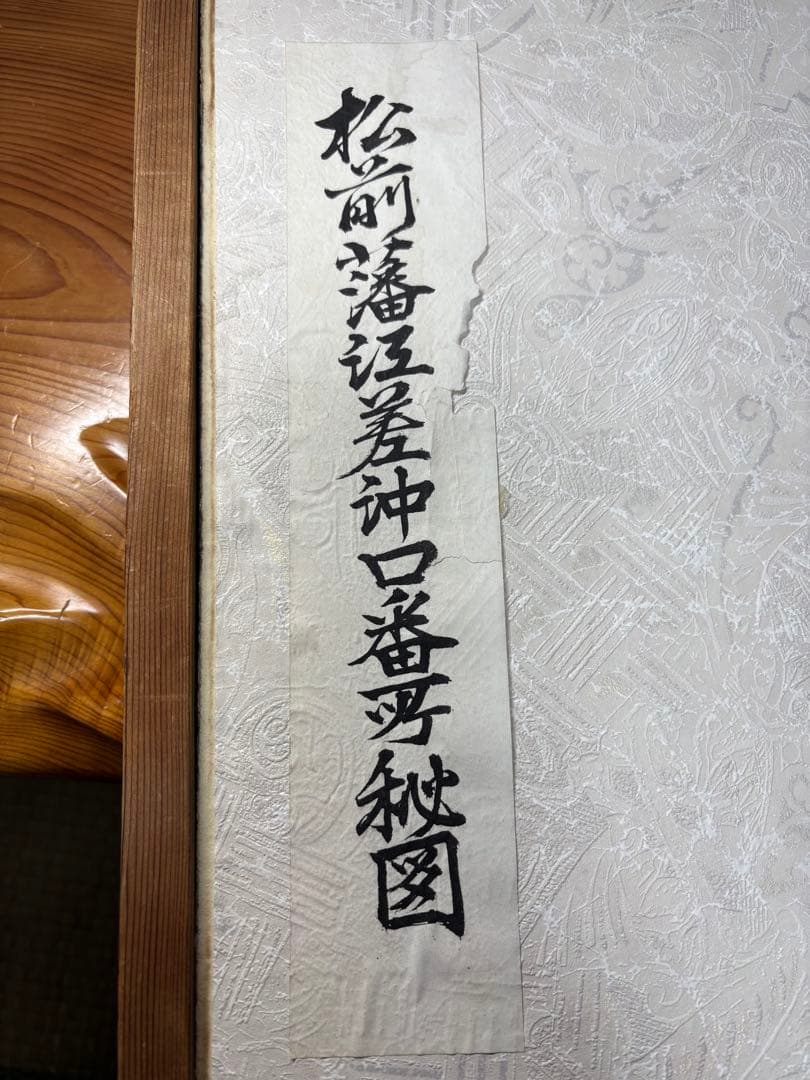 松前藩江差沖口番所秘図